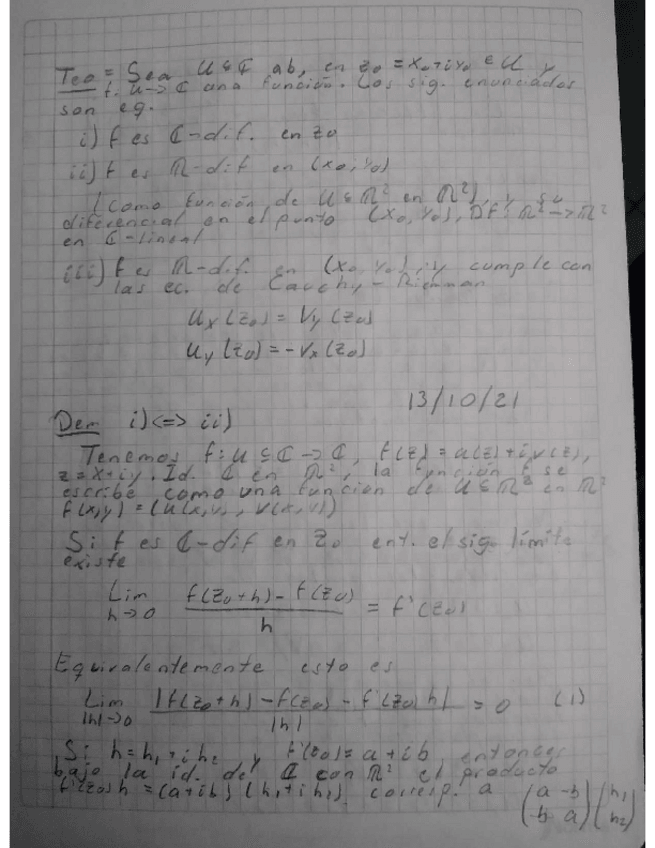 Teo = Sea U ⊆ ℂ ab, en z₀ = x₀+iy₀ ∈ U y
f: U→ℂ una función. Los sig. enunciados
son eq.
i) f es ℂ-dif. en z₀
ii) f es ℝ-dif en (x₀, y₀)
(como función de U ⊆ ℝ² en ℝ²), y su
diferencial en el punto (x₀, y₀), Df: ℝ²→ℝ²
en ℂ-lineal
iii) f es ℝ-dif. en (x₀, y₀), y cumple con
las ec. de Cauchy-Rieman
Uₓ(z₀) = Vᵧ(z₀)
Uᵧ(z₀) = -Vₓ(z₀)
13/10/21
Dem i) <=> ii)
Tenemos f: U ⊆ ℂ → ℂ, f(z) = u(z) + iv(z),
z = x+iy. Id. ℂ en ℝ², la función f se
escribe como una función de U ⊆ ℝ² en ℝ²
f(x,y) = (u(x,y), v(x,y))
Si f es ℂ-dif en z₀ ent. el sig. límite
existe
Lim h→0 (f(z₀+h) - f(z₀)) / h = f'(z₀)
Equivalentemente esto es
Lim |h|→0 |f(z₀+h) - f(z₀) - f'(z₀)h| / |h| = 0 (1)
Si h = h₁+ih₂ y f'(z₀) = a+ib entonces
bajo la id. de ℂ con ℝ² el producto
f'(z₀)h = (a+ib)(h₁+ih₂) corresp. a (a -b; b a)(h₁; h₂)